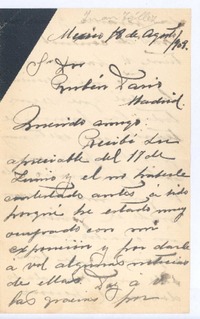 Mexico 18 de Agosto 1908.
Sr Don
Rubén Darío
Madrid.
Querido amigo:
Recibí su
apreciable del 11 de
Junio y el no haberle
contestado antes á sido
porque he estado muy
ocupado con mi
exposicion y por darle
a vd algunas noticias
de ellas. Doy a
las gracias por